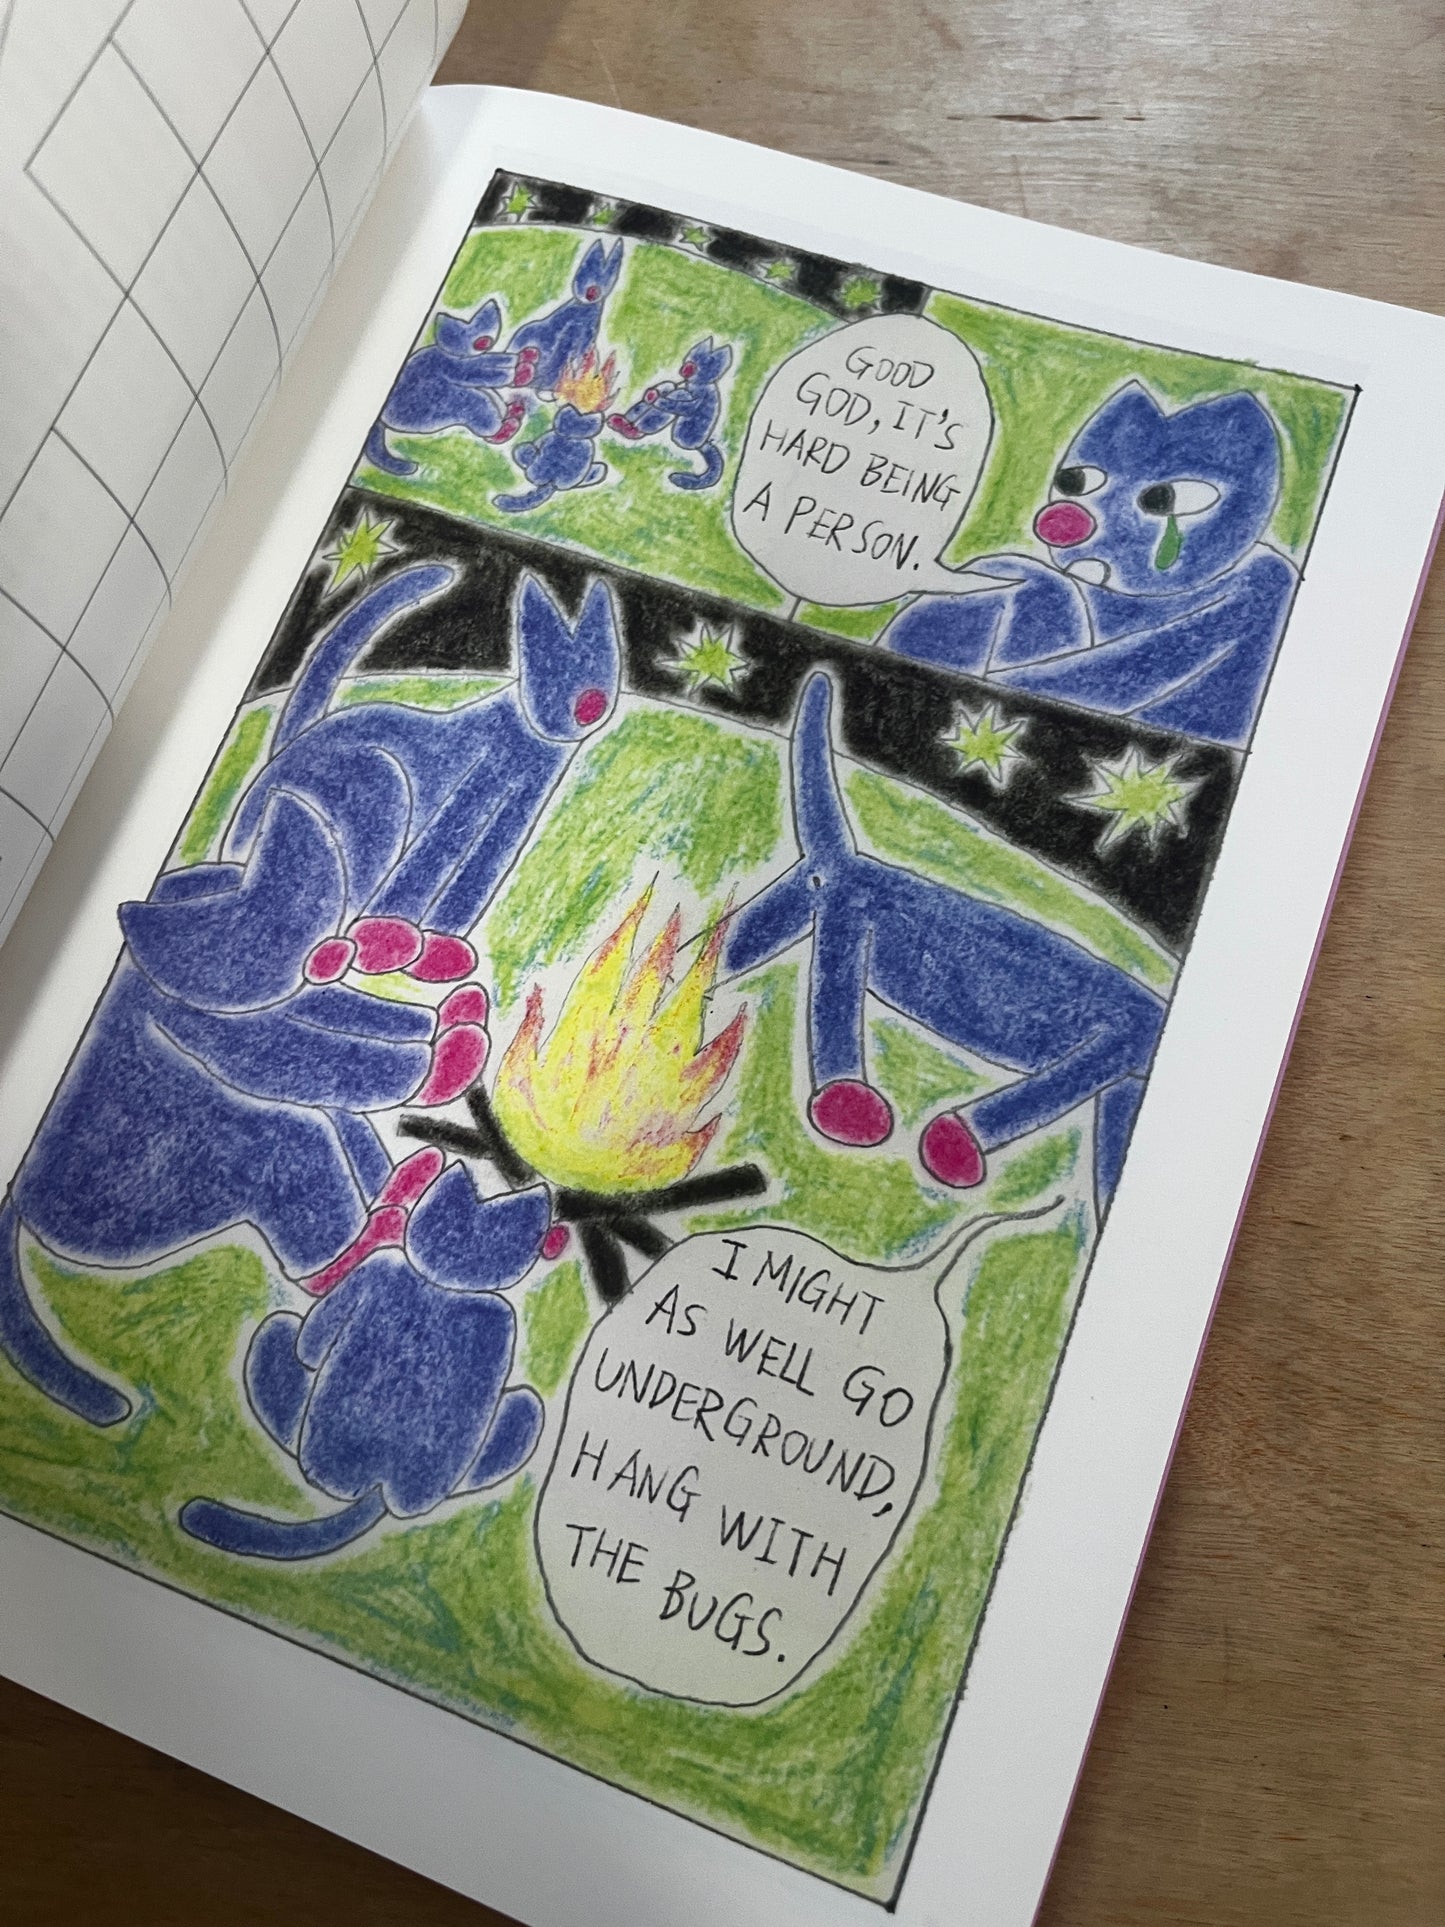 GOOD
GOD, IT'S
HARD BEING
A PERSON.
I MIGHT
AS WELL GO
UNDERGROUND,
HANG WITH
THE BUGS.